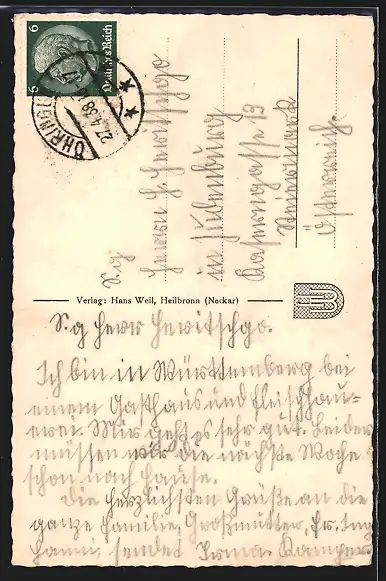 6 6
Deutsches Reich
ÖHRINGEN
27.4.38
S.g.
Herrn H. Heritschgo
in Judenburg
Kaserngasse 13
Steiermark
Österreich.
Verlag: Hans Weil, Heilbronn (Neckar)
S.g Herr Heritschgo.
Ich bin in Württemberg bei
einem Gasthaus und Fleischhau-
erei. Mir geht es sehr gut. Leider
müssen wir die nächste Woche
schon nach Hause.
Die herzlichsten Grüße an die
ganze Familie, Großmutter, Fr.
sendet Irma